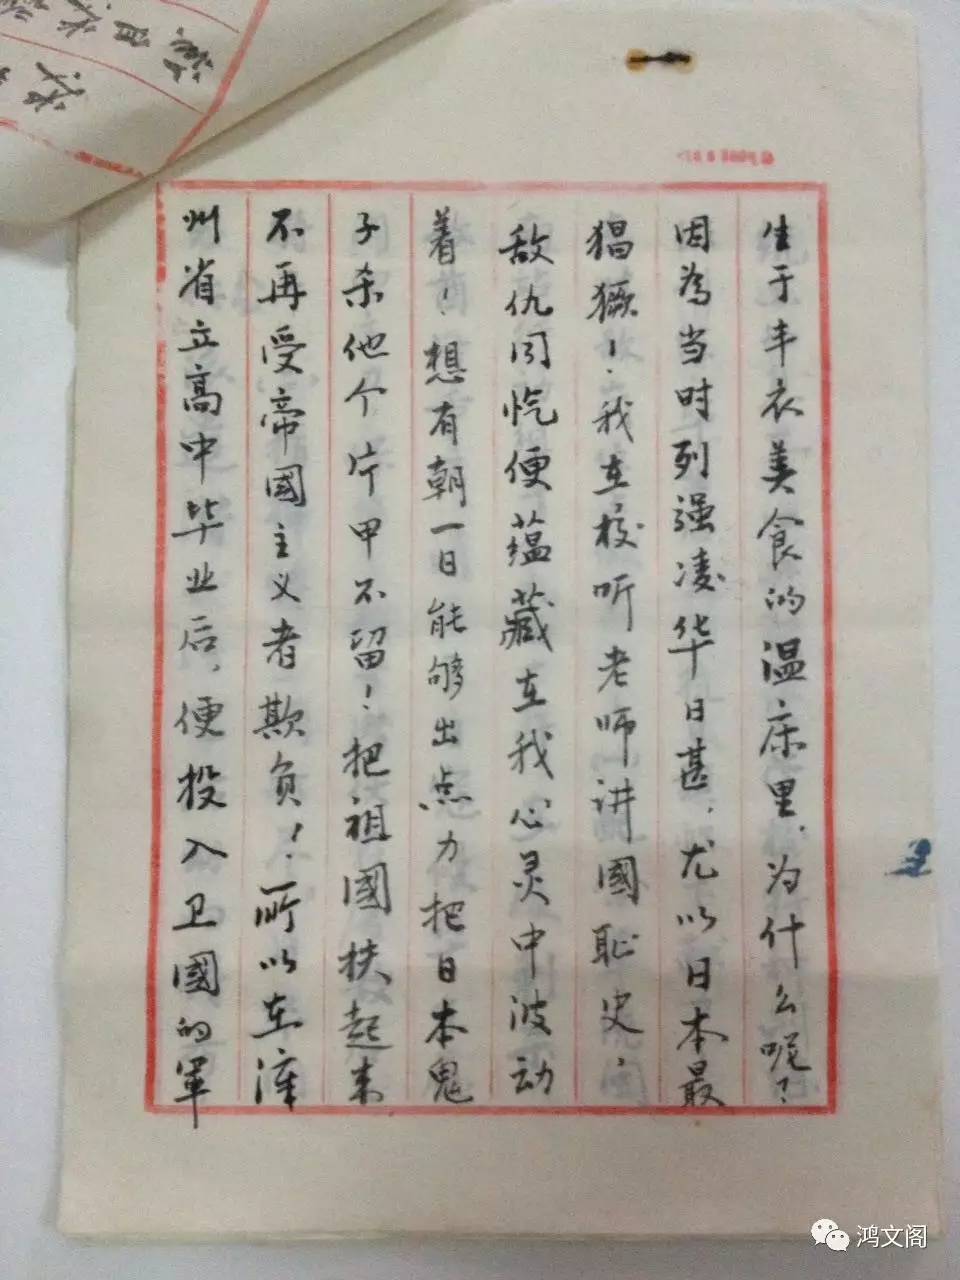 生于丰衣美食的温床里，为什么呢？
因為当时列强凌华日甚，尤以日本最
猖獗！我在校听老师讲國恥史，
敌仇同忾便蕴藏在我心灵中波动
着！想有朝一日能够出点力把日本鬼
子杀他个片甲不留！把祖國扶起来
不再受帝國主义者欺负！所以在漳
州省立高中毕业后，便投入卫國的軍
鸿文阁